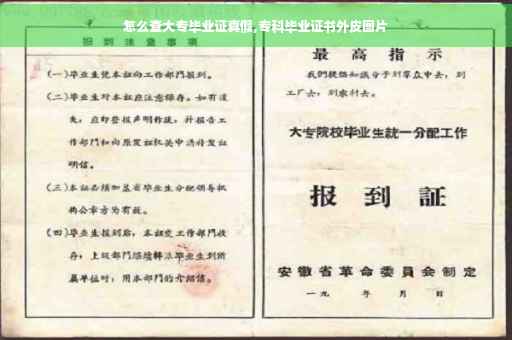 怎么查大专毕业证真假,专科毕业证书外皮图片
报到注意事项
(一)毕业生凭本证向工作部门报到。
(二)毕业生对本证应注意保存。如有遗
失,应即登报声明作废,并报告工
作部门和向原发证机关申请补发证
明信。
(三)本证必须加盖省毕业生分配领导机
构公章方为有效。
(四)毕业生报到后,本证交工作部门收
存;上级部门继续转派毕业生到所
属单位时,用本部门的介绍信。
最高指示
我们提倡知识分子到群众中去,到
工厂去,到农村去。
大专院校毕业生統一分配工作
报到証
安徽省革命委員会制定
一九 年 月 日